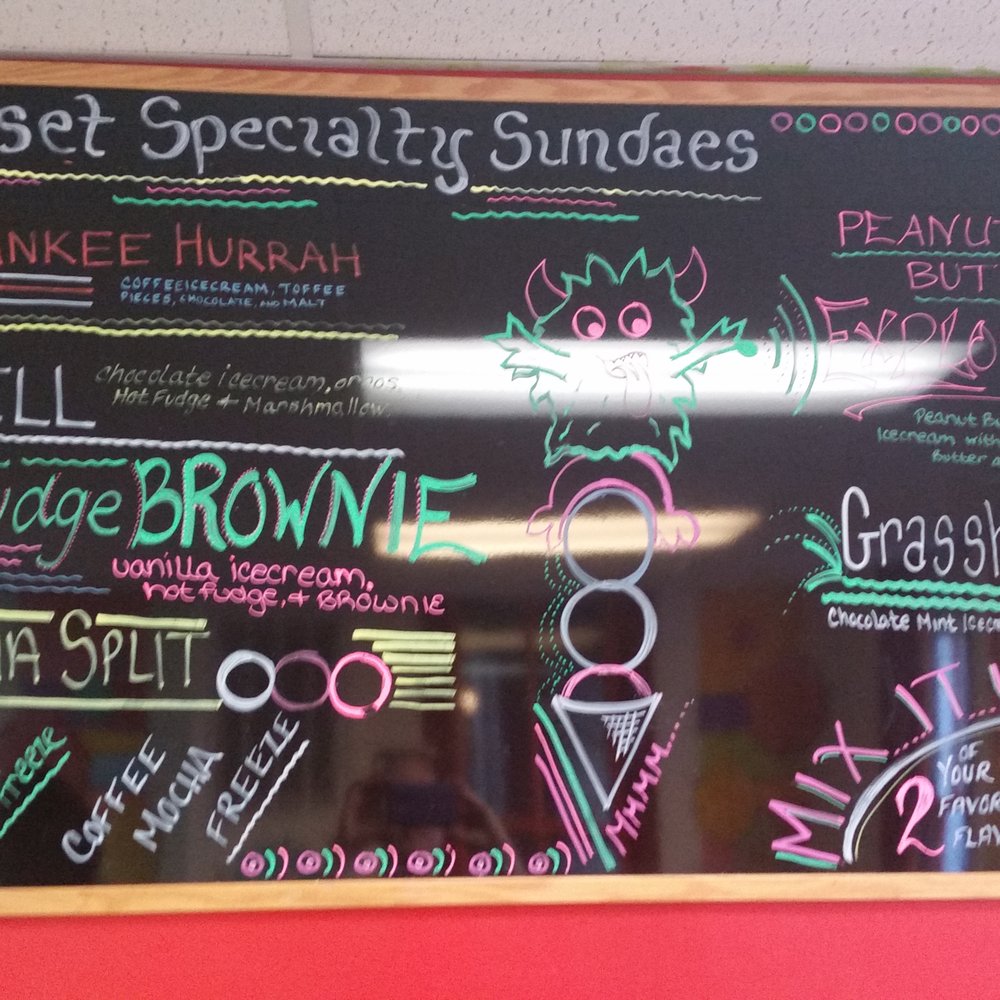 set Specialty Sundaes
ANKEE HURRAH
COFFEEICECREAM, TOFFEE
PIECES, CHOCOLATE, AND MALT
ELL
chocolate icecream, oreos,
Hot Fudge + Marshmallow.
udge BROWNIE
vanilla icecream,
hot fudge, + BROWNIE
NA SPLIT
freeze
COFFEE
MOCHA
FREEZE
MMMM....
PEANUT
BUTT
EXPLO
Peanut Bu
Icecream with
Butter
Grassh
Chocolate Mint Icecr
MIX IT
2 OF
YOUR
FAVOR
FLAV